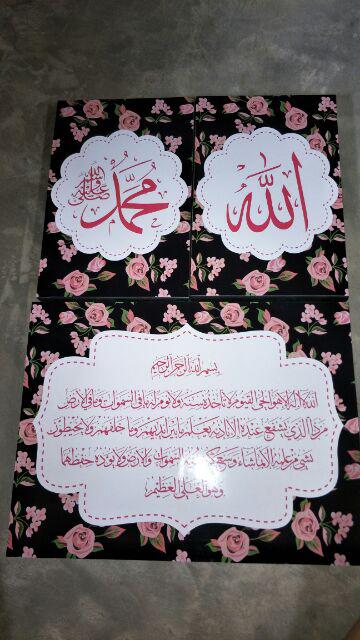 الله
محمد
صلى الله عليه وسلم
بسم الله الرحمن الرحيم
الله لا إله إلا هو الحي القيوم لا تأخذه سنة ولا نوم له ما في السموات وما في الأرض
من ذا الذي يشفع عنده إلا بإذنه يعلم ما بين أيديهم وما خلفهم ولا يحيطون
بشيء من علمه إلا بما شاء وسع كرسيه السموات والأرض ولا يؤده حفظهما
وهو العلي العظيم